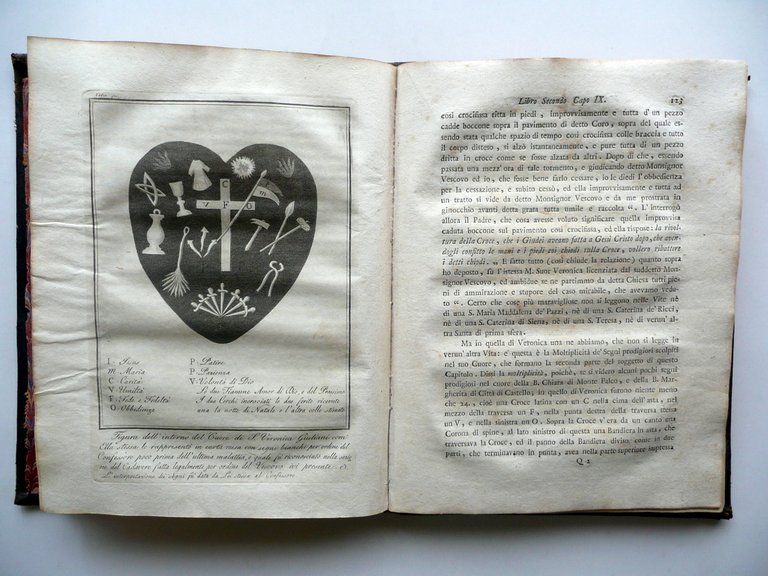 C
V F O
m
I. Jesus
m. Maria
C. Carità
V. Umiltà
F. Fede e Fedeltà
O. Obbedienza
P. Patire
P. Pazienza
V. Volontà di Dio
Le due Fiamme Amor di Dio, e del Prossimo
I due Cerchi incrociati le due ferite ricevute
una la notte di Natale e l'altra colle stimate
Figura dell'interno del Cuore di S. Veronica Giuliani com'
Ella stessa lo rappresentò in carta rossa con segni bianchi per ordine del
Confessore poco prima dell'ultima malattia, e quale fu riconosciuto nella sezio
ne del Cadavere fatta legalmente per ordine del Vescovo ivi presente.
Le interpretazioni de' segni fù data da Lei stessa al Confessore.
Libro Secondo Capo IX. 123
così crocifissa ritta in piedi, improvvisamente e tutta d'un pezzo
cadde boccone sopra il pavimento di detto Coro, sopra del quale es-
sendo stata qualche spazio di tempo così crocifissa colle braccia e tutto
il corpo disteso, si alzò istantaneamente, e pure tutta di un pezzo
dritta in croce come se fosse alzata da altri. Dopo di che, essendo
passata una mezz' ora di tale tormento, e giudicando detto Monsignor
Vescovo ed io, che fosse bene farlo cessare, io le diedi l'obbedienza
per la cessazione, e subito cessò, ed ella improvvisamente e tutta ad
un tratto si vide da detto Monsignor Vescovo e da me prostrata in
ginocchio avanti detta grata tutta umile e raccolta “. L'interrogò
allora il Padre, che cosa avesse voluto significare quella improvvisa
caduta boccone sul pavimento così crocifissa, ed ella rispose: la ricol-
tura della Croce, che i Giudei aveano fatta a Gesù Cristo dopo, che aven-
dogli confitto le mani e i piedi coi chiodi sulla Croce, vollero ribattere
i detti chiodi. „ E fatto tutto (così chiude la relazione) quanto sopra
ho deposto, fu l'istessa M. Suor Veronica licenziata dal suddetto Mon-
signor Vescovo, ed ambidue se ne partimmo da detta Chiesa tutti pie-
ni di ammirazione e stupore del caso mirabile, che avevamo vedu-
to “. Certo che cose più maravigliose non si leggono nelle Vite nè
di una S. Maria Maddalena de' Pazzi, nè di una S. Caterina de' Ricci,
nè di una S. Caterina di Siena, nè di una S. Teresa, nè di verun' al-
tra Santa di prima sfera.
Ma in quella di Veronica una ne abbiamo, che non si legge in
verun' altra Vita: e questa è la Moltiplicità de' Segni prodigiosi scolpiti
nel suo Cuore, che formano la seconda parte del soggetto di questo
Capitolo. Dissi la moltiplicità, poichè, se si videro alcuni pochi segni
prodigiosi nel cuore della B. Chiara di Monte Falco, e della B. Mar-
gherita di Città di Castello, in quello di Veronica furono niente meno
che 24.: cioè una Croce latina con un C nella cima dell' asta, nel
mezzo della traversa un F, nella punta destra della traversa stessa
un V, e nella sinistra un O. Sopra la Croce v'era da un canto una
Corona di spine, al lato sinistro di questa una Bandiera in asta, che
traversava la Croce, ed il panno della Bandiera diviso come in due
parti, che terminavano in punta, avea nella parte superiore impressa
Q 2